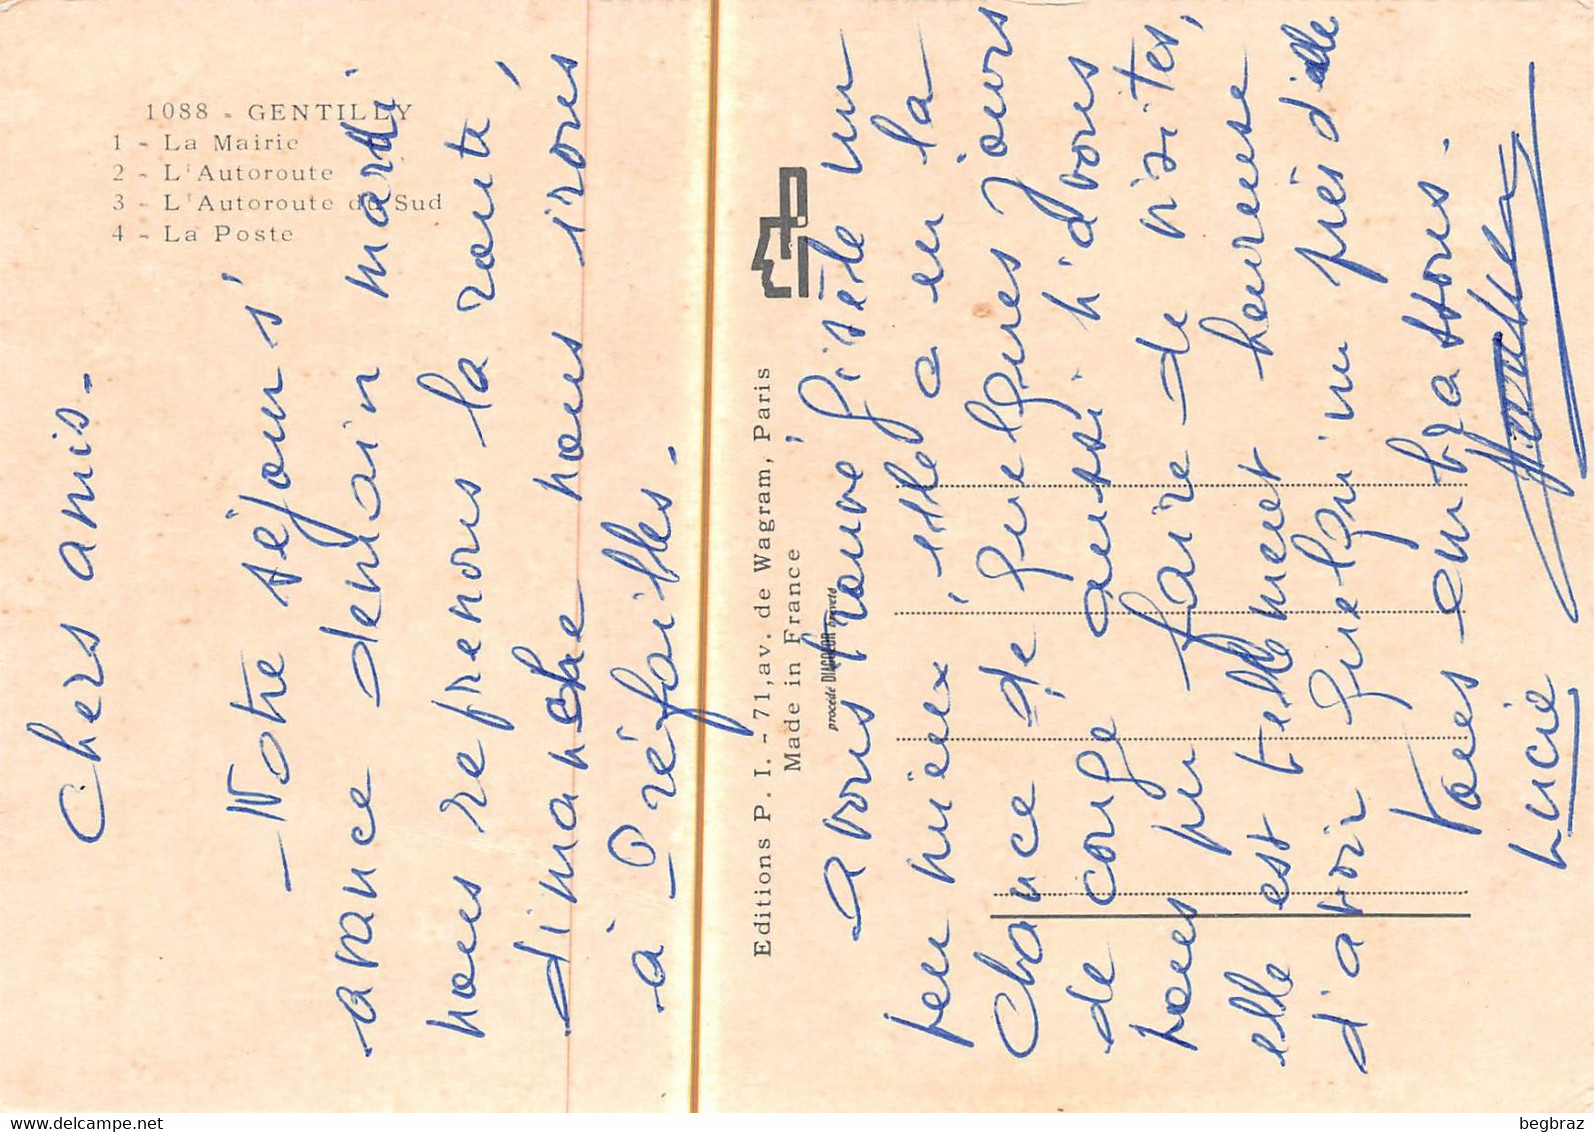 1088 - GENTILLY
1 - La Mairie
2 - L'Autoroute
3 - L'Autoroute du Sud
4 - La Poste
Chers amis -
- Notre séjour s'
avance demain mardi
nous reprenons la route,
dimanche nous irons
à Préfailles -
Editions P. I. - 71, av. de Wagram, Paris
Made in France
procédé DIACOLOR breveté
avons trouvé Gisèle un
peu mieux, elle a eu la
chance de quelques jours
de congé aussi n'avons
pu faire de visites,
elle est tellement heureuse
d'avoir quelqu'un près d'elle
Tous embrassons -
Lucie
www.delcampe.net
begbraz